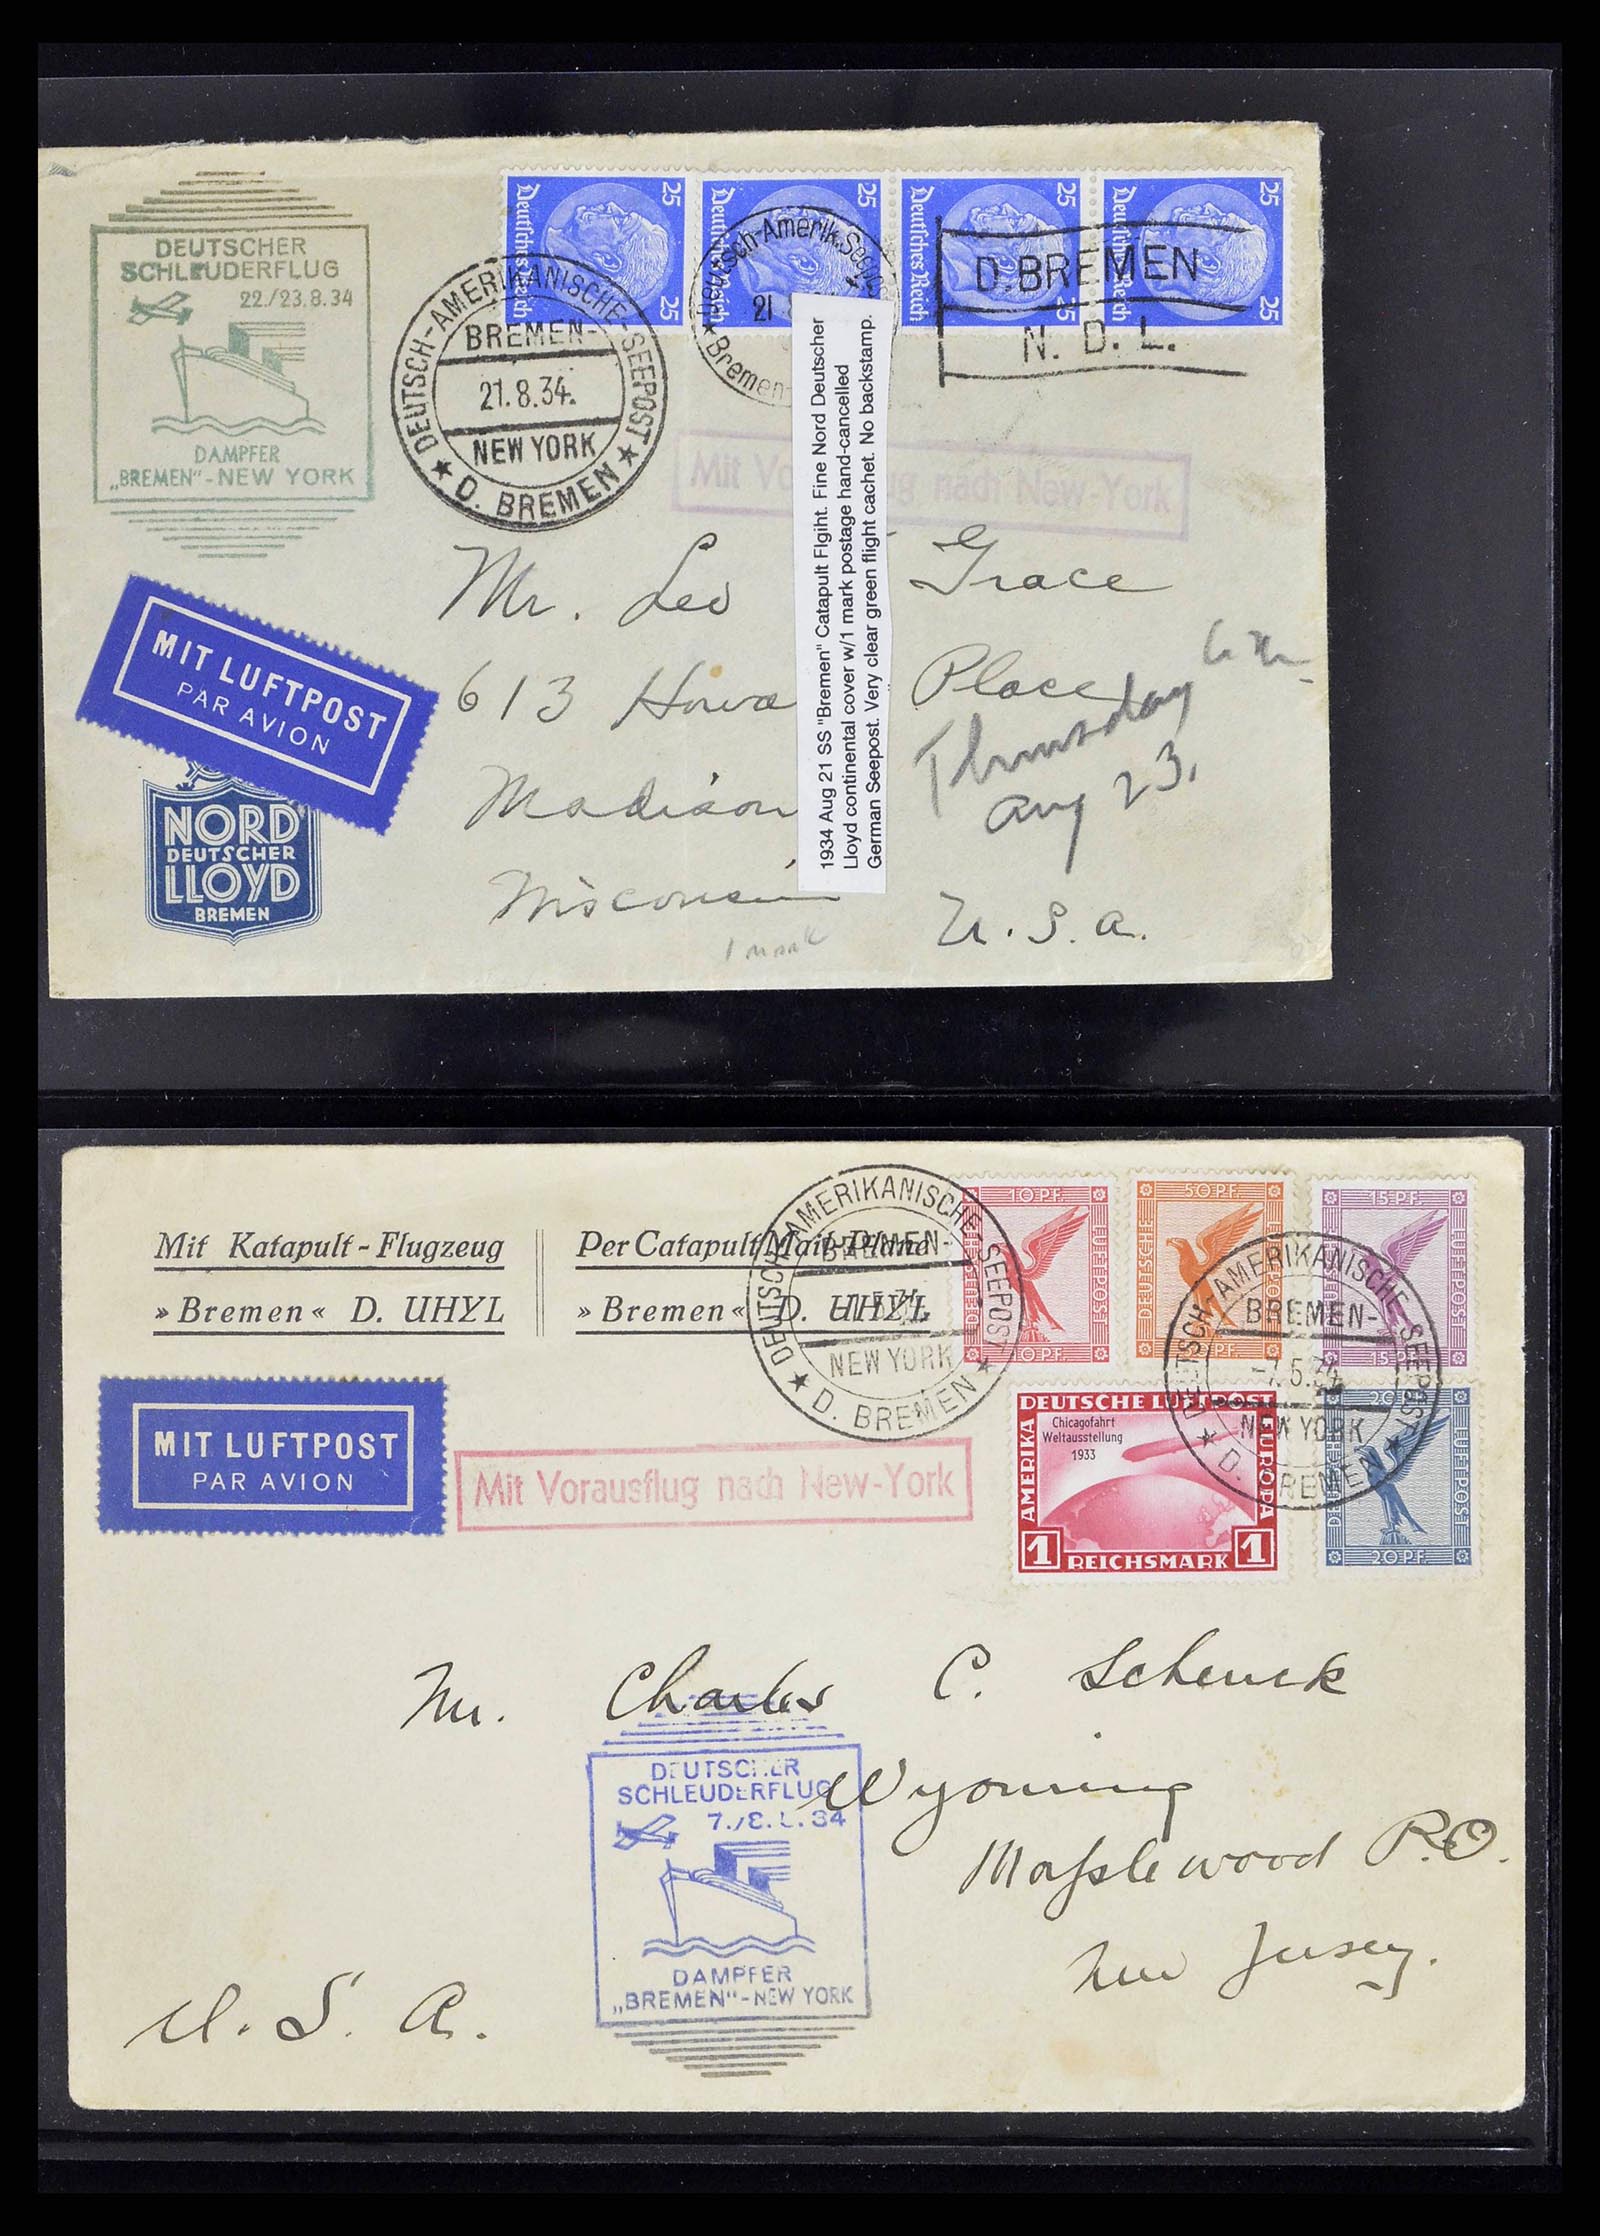 DEUTSCHER
SCHLEUDERFLUG
22./23.8.34
DAMPFER
„BREMEN"-NEW YORK
Deutsches Reich 25 25
Deutsches Reich 25
Deutsches Reich 25 25
Deutsches Reich 25 25
DEUTSCH-AMERIKANISCHE-SEEPOST
BREMEN-
21.8.34.
NEW YORK
★ D. BREMEN ★
Deutsch-Amerik. Seepost
21
★ Bremen-
D. BREMEN
N. D. L.
Mit Vo ug nach New-York
1934 Aug 21 SS "Bremen" Catapult Flgiht. Fine Nord Deutscher
Lloyd continental cover w/1 mark postage hand-cancelled
German Seepost. Very clear green flight cachet. No backstamp.
MIT LUFTPOST
PAR AVION
NORD
DEUTSCHER
LLOYD
BREMEN
Mr. Leo Grace
613 Howa Place
Madison
Wisconsin
U. S. A.
Thursday
Aug 23.
1 mark
Mit Katapult-Flugzeug
»Bremen« D. UHYL
Per Catapult Mail-Plane
»Bremen« D. UHYL
DEUTSCH-AMERIKANISCHE-SEEPOST
BREMEN-
NEW YORK
★ D. BREMEN ★
10 PF. DEUTSCHE LUFTPOST 10 PF.
50 PF. DEUTSCHE LUFTPOST
15 PF. LUFTPOST 15 PF.
DEUTSCH-AMERIKANISCHE-SEEPOST
BREMEN-
-7.5.34
NEW YORK
★ D. BREMEN ★
DEUTSCHE LUFTPOST
AMERIKA
EUROPA
Chicagofahrt
Weltausstellung
1933
1 REICHSMARK 1
20 PF. DEUTSCHE LUFTPOST 20 PF.
MIT LUFTPOST
PAR AVION
Mit Vorausflug nach New-York
Mr. Charles C. Schenck
Wyoming
Maplewood P.O.
New Jersey.
U. S. A.
DEUTSCHER
SCHLEUDERFLUG
7./8. . 34
DAMPFER
„BREMEN"-NEW YORK